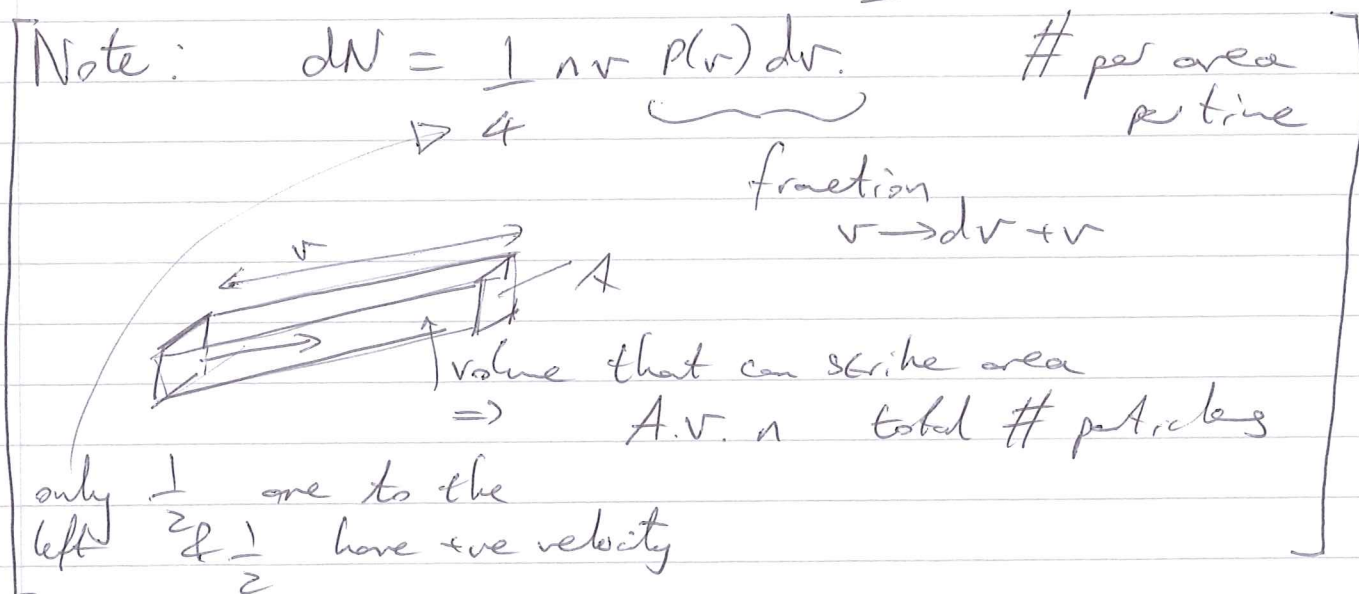 Note: dN = 1/4 n v P(v) dv. # per area
per time
fraction
v → dv + v
v
A
volume that can strike area
=> A.v.n total # particles
only 1/2 are to the
left & 1/2 have +ve velocity